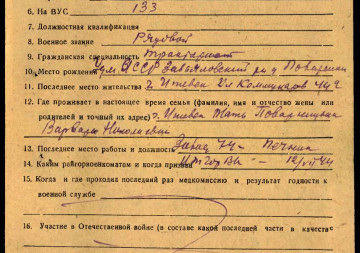 6. На ВУС 133
7. Должностная квалификация
8. Военное звание Рядовой
9. Гражданская специальность тракторист
10. Место рождения Удм АССР Завьяловский р-н
11. Последнее место жительства г. Ижевск Ул Коммунаров
12. Где проживает в настоящее время семья (фамилия, имя и отчество жены или
родителей и точный их адрес) г. Ижевск Мать
Варвара Николаевна
13. Последнее место работы и должность Завод 74 - Печник
14. Каким райгорвоенкоматом и когда призван
15. Когда и где проходил раз медкомиссию и результат годности к
военной службе
16. Участие в Отечественной войне (в составе какой последней части в качеств